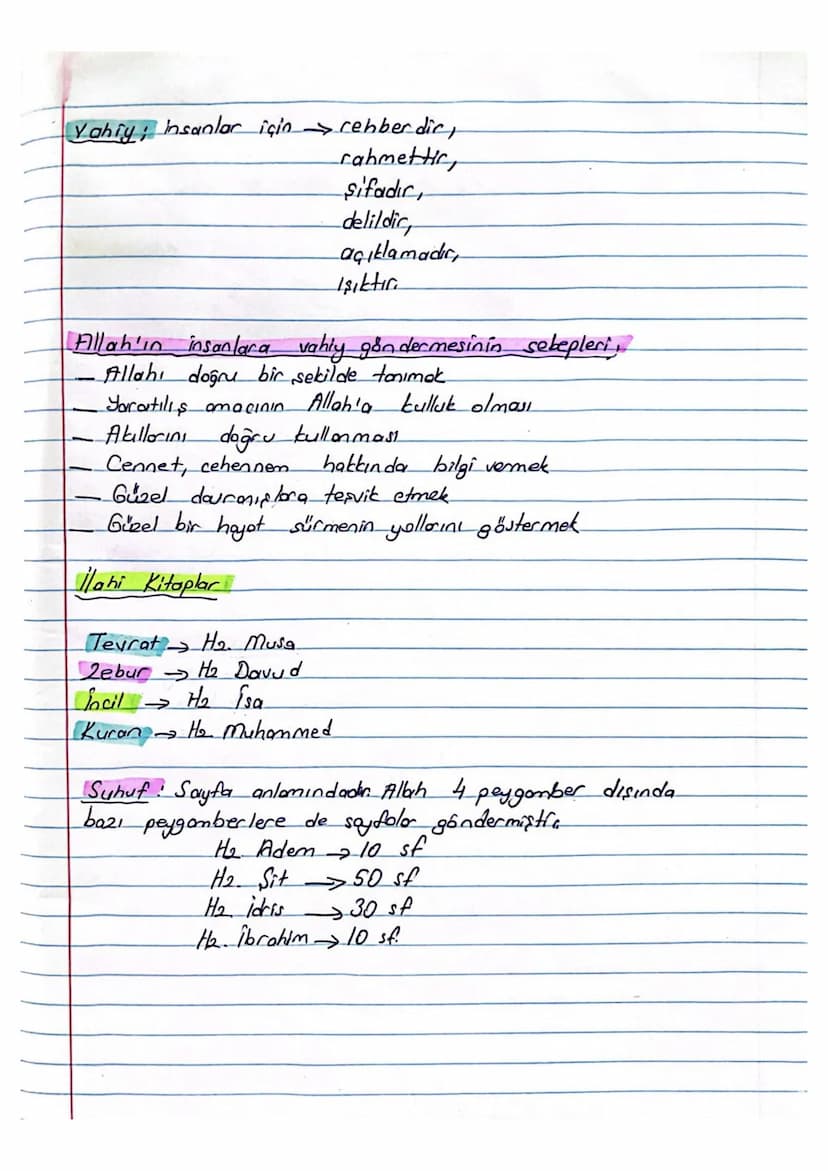 Vahiy; İnsanlar için → rehberdir,
rahmettir,
şifadır,
delildir,
açıklamadır,
Işıktır.
Allah'ın insanlara vahiy göndermesinin sebepleri,
- Allahı doğru bir şekilde tanımak
- Yaratılış amacının Allah'a kulluk olması
- Akıllarını doğru kullanması
- Cennet, cehennem hakkında bilgi vermek
- Güzel davranışlara teşvik etmek
- Güzel bir hayat sürmenin yollarını göstermek
İlahi Kitaplar:
Tevrat → Hz. Musa
Zebur → Hz Davud
İncil → Hz İsa
Kuran → Hz Muhammed
Suhuf: Sayfa anlamındadır. Allah 4 peygamber dışında
bazı peygamberlere de sayfalar göndermiştir.
Hz. Adem → 10 sf
Hz. Şit → 50 sf
Hz idris → 30 sf
Hz. İbrahim → 10 sf.